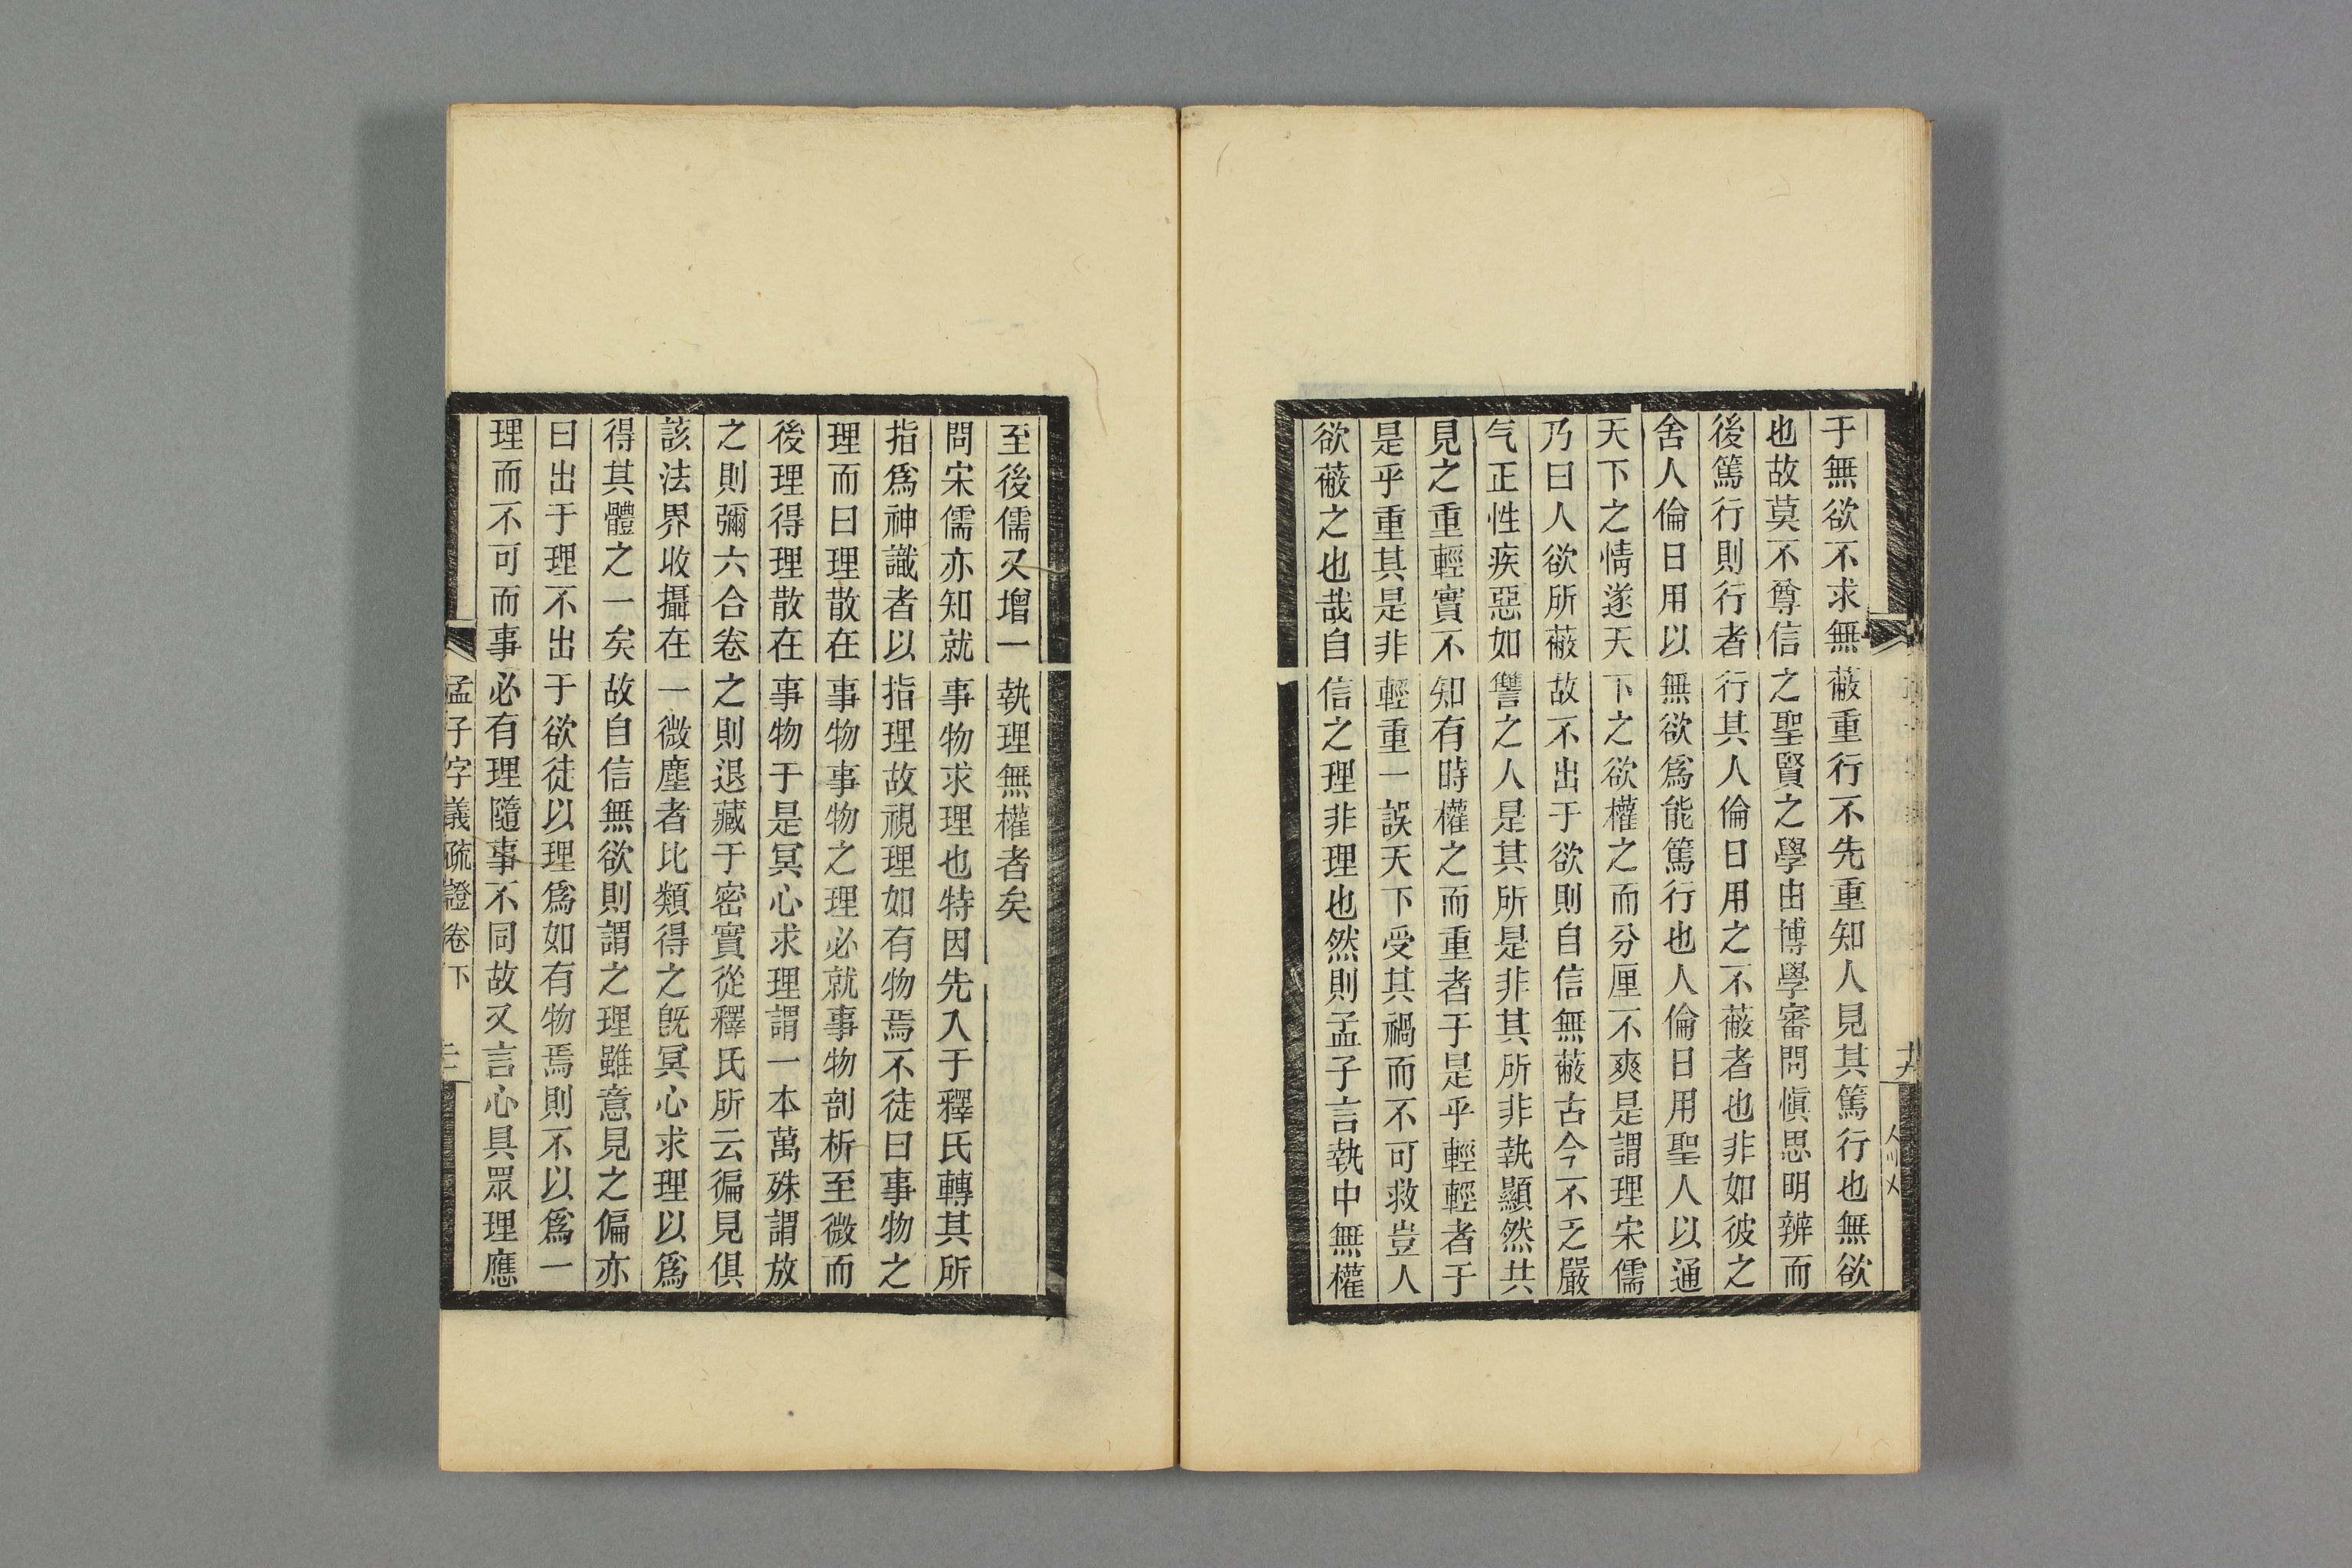 于無欲不求無蔽重行不先重知人見其篤行也無欲
也故莫不尊信之聖賢之學由博學審問愼思明辨而
後篤行則行者行其人倫日用之不蔽者也非如彼之
舍人倫日用以無欲爲能篤行也人倫日用聖人以通
天下之情遂天下之欲權之而分厘不爽是謂理宋儒
乃曰人欲所蔽故不出于欲則自信無蔽古今不乏嚴
气正性疾惡如讐之人是其所是非其所非執顯然共
見之重輕實不知有時權之而重者于是乎輕輕者于
是乎重其是非輕重一誤天下受其禍而不可救豈人
欲蔽之也哉自信之理非理也然則孟子言執中無權
至後儒又增一執理無權者矣
問宋儒亦知就事物求理也特因先入于釋氏轉其所
指爲神識者以指理故視理如有物焉不徒曰事物之
理而曰理散在事物事物之理必就事物剖析至微而
後理得理散在事物于是冥心求理謂一本萬殊謂放
之則彌六合卷之則退藏于密實從釋氏所云徧見俱
該法界收攝在一微塵者比類得之旣冥心求理以爲
得其體之一矣故自信無欲則謂之理雖意見之偏亦
曰出于理不出于欲徒以理爲如有物焉則不以爲一
理而不可而事必有理隨事不同故又言心具眾理應
孟子字義疏證卷下